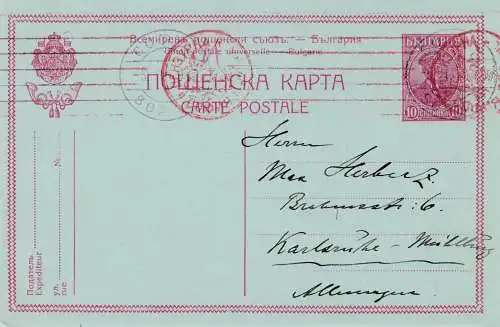 Всемиренъ пощенски съюзъ. — България
Union postale universelle — Bulgarie
ПОЩЕНСКА КАРТА
CARTE POSTALE
БЪЛГАРИЯ
10 10
Herrn
Max
Karlsruhe - Mühlburg
Allemagne
Податель
Expéditeur
№
ул.
rue